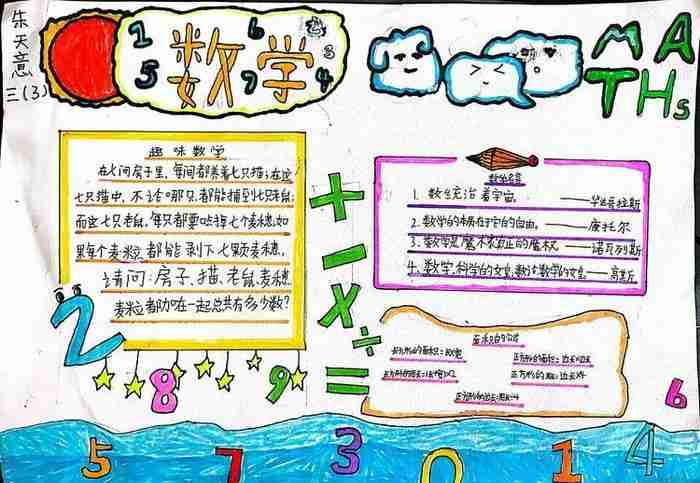 朱天意
三(3)
2 6 3
5 7 4
数学
MATHs
趣味数学
在七间房子里,每间都养着七只猫;在这
七只猫中,不论哪只,都能捕到七只老鼠;
而这七只老鼠,每只都要吃掉七个麦穗;如
果每个麦粒都能剥下七颗麦穗,
请问:房子、猫、老鼠、麦穗、
麦粒都加在一起总共有多少数?
数学名言
1、数统治着宇宙。——毕达哥拉斯
2、数学的本质在于它的自由。——康托尔
3、数学是
4、数学,科学的女皇;数论,数学的女皇——高斯
面积的公式
长方形的面积=长X宽
正方形的面积=边长X边长
长方形的周长=(长+宽)X2
正方形的周长=边长X4
正方形的边长=周长÷4
+
-
X
÷
=
2
8 9
6
5 7 3 0 1 4